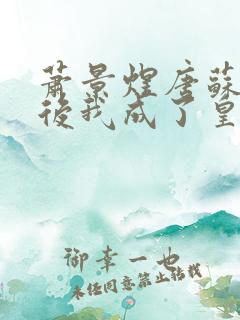 蕭景煌唐蘇
後我成了皇
御幸一也
未經同意禁止轉載